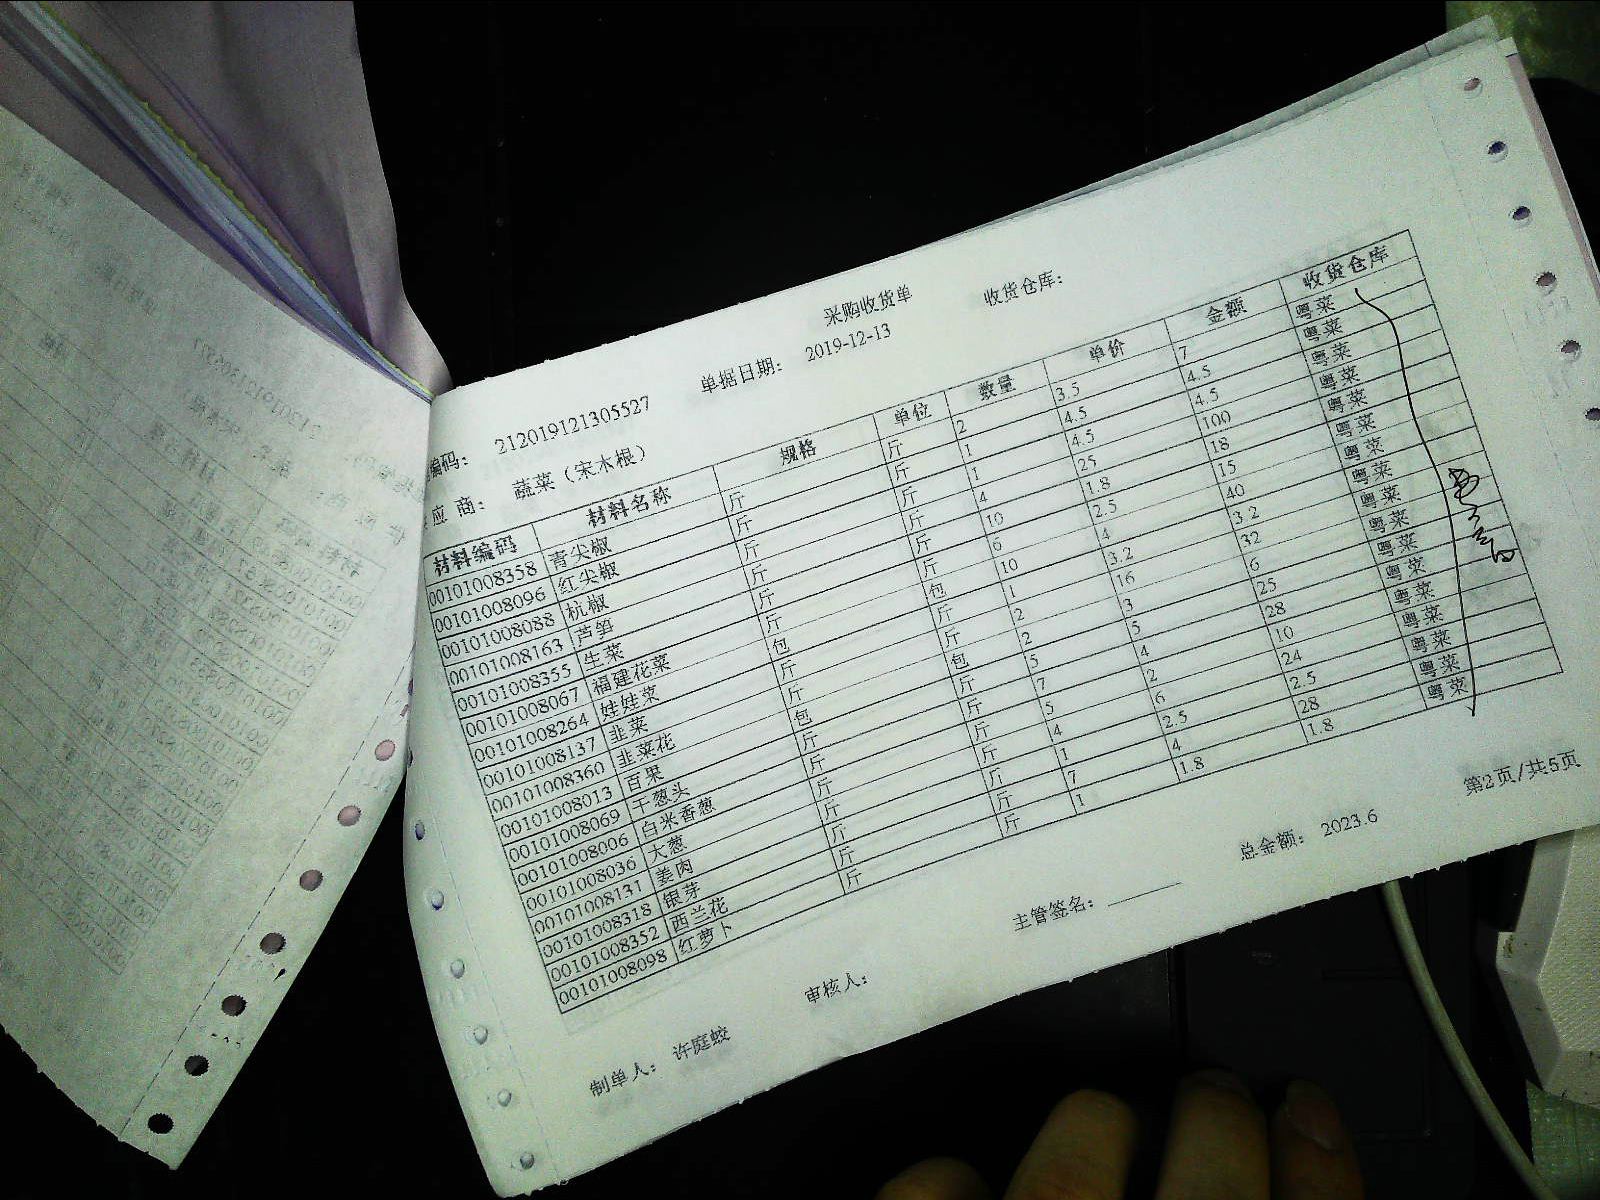 采购收货单
编码： 212019121305527 单据日期： 2019-12-13 收货仓库：
应 商： 蔬菜（宋木根）
材料编码 材料名称 规格 单位 数量 单价 金额 收货仓库
00101008358 青尖椒 斤 斤 2 3.5 7 粤菜
00101008096 红尖椒 斤 斤 1 4.5 4.5 粤菜
00101008088 杭椒 斤 斤 1 4.5 4.5 粤菜
00101008163 芦笋 斤 斤 4 25 100 粤菜
00101008355 生菜 斤 斤 10 1.8 18 粤菜
00101008067 福建花菜 斤 斤 6 2.5 15 粤菜
00101008264 娃娃菜 包 包 10 4 40 粤菜
00101008137 韭菜 斤 斤 1 3.2 3.2 粤菜
00101008360 韭菜花 斤 斤 2 16 32 粤菜
00101008013 百果 包 包 2 3 6 粤菜
00101008069 干葱头 斤 斤 5 5 25 粤菜
00101008006 白米香葱 斤 斤 7 4 28 粤菜
00101008036 大葱 斤 斤 5 2 10 粤菜
00101008131 姜肉 斤 斤 4 6 24 粤菜
00101008318 银芽 斤 斤 1 2.5 2.5 粤菜
00101008352 西兰花 斤 斤 7 4 28 粤菜
00101008098 红萝卜 斤 斤 1 1.8 1.8 粤菜
总金额： 2023.6 第2页/共5页
制单人： 许庭蛟 审核人： 主管签名：